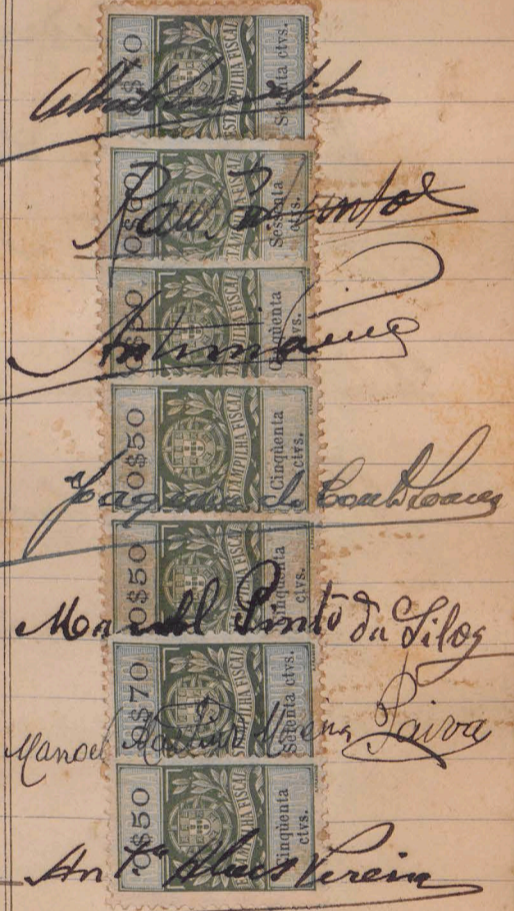 0$70
ESTAMPILHA FISCAL
Setenta ctvs.
0$60
ESTAMPILHA FISCAL
Sessenta ctvs.
Raul Santos
ESTAMPILHA FISCAL
Cinqüenta ctvs.
0$50
ESTAMPILHA FISCAL
Cinqüenta ctvs.
0$50
ESTAMPILHA FISCAL
Cinqüenta ctvs.
Manoel Pinto da Silva
0$70
ESTAMPILHA FISCAL
Setenta ctvs.
Manoel Moreira Paiva
0$50
ESTAMPILHA FISCAL
Cinqüenta ctvs.
Antº Alves Pereira